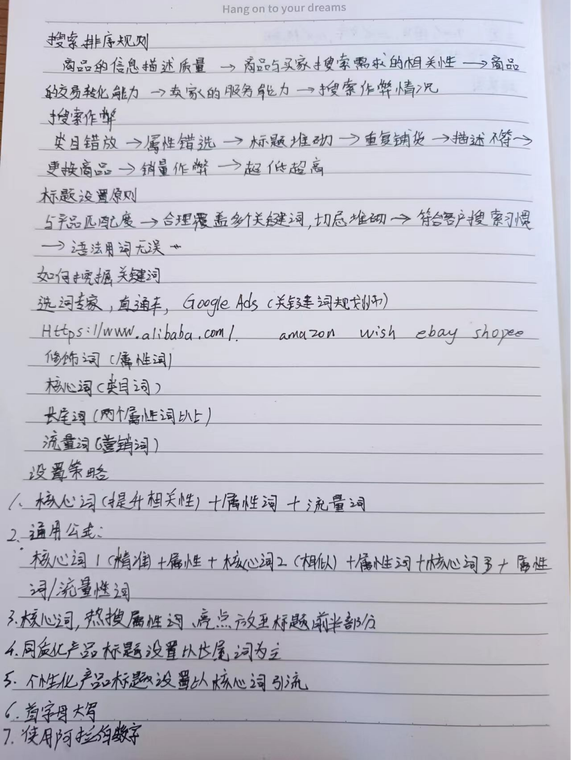 Hang on to your dreams
搜索排序规则
商品的信息描述质量 → 商品与买家搜索需求的相关性 → 商品
的交易转化能力 → 卖家的服务能力 → 搜索作弊情况
搜索作弊
类目错放 → 属性错选 → 标题堆砌 → 重复铺货 → 描述不符 →
更换商品 → 销量作弊 → 超低超高
标题设置原则
与产品匹配度 → 合理覆盖多个关键词,切忌堆砌 → 符合客户搜索习惯
→ 语法用词无误
如何挖掘关键词
选词专家,直通车,Google Ads(关键词规划师)
Https://www.alibaba.com/. amazon wish ebay shopee
修饰词(属性词)
核心词(类目词)
长尾词(两个属性词以上)
流量词(营销词)
设置策略
1. 核心词(提升相关性)+属性词+流量词
2. 通用公式:
核心词1(精准)+属性+核心词2(相似)+属性词+核心词3+属性
词/流量性词
3. 核心词,热搜属性词、亮点放至标题前半部分
4. 同质化产品标题设置以长尾词为主
5. 个性化产品标题设置以核心词引流
6. 首字母大写
7. 使用阿拉伯数字